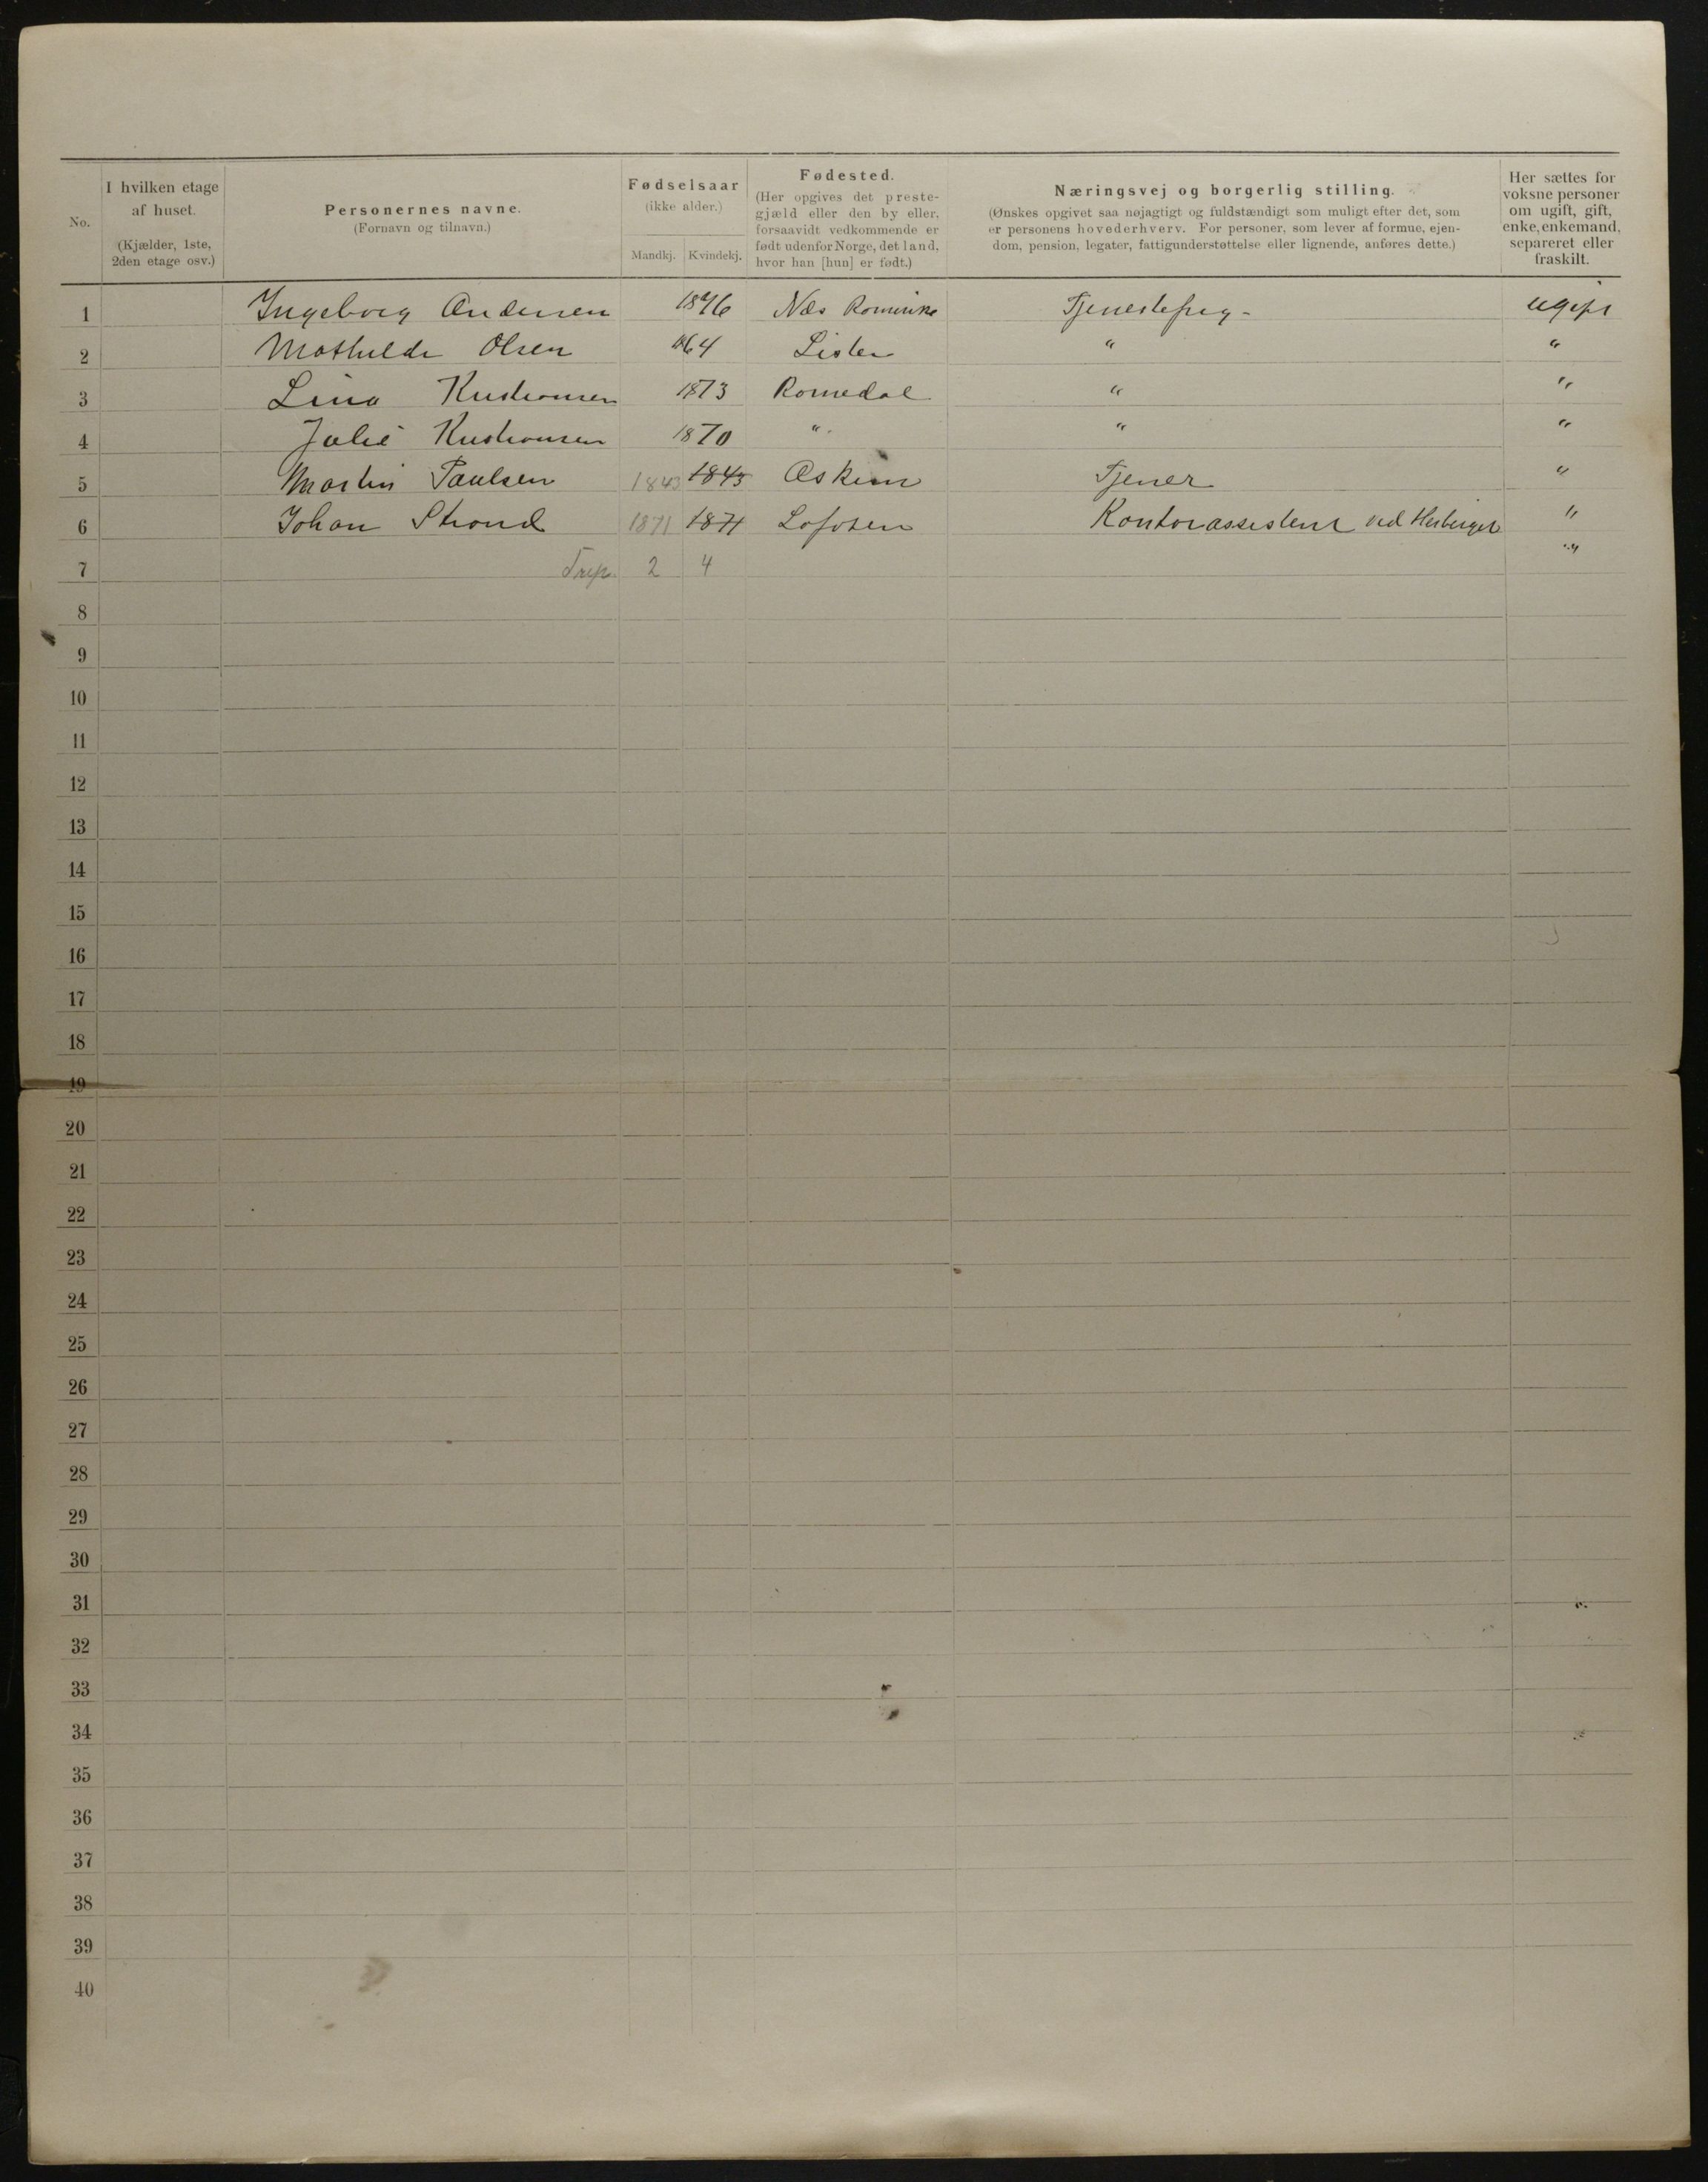 No.
I hvilken etage af huset. (Kjælder, 1ste, 2den etage osv.)
Personernes navne. (Fornavn og tilnavn.)
Fødselsaar (ikke alder.)
Mandkj. Kvindekj.
Fødested. (Her opgives det prestegjæld eller den by eller, forsaavidt vedkommende er født udenfor Norge, det land, hvor han [hun] er født.)
Næringsvej og borgerlig stilling. (Ønskes opgivet saa nøjagtigt og fuldstændigt som muligt efter det, som er personens hovederhverv. For personer, som lever af formue, ejendom, pension, legater, fattigunderstøttelse eller lignende, anføres dette.)
Her sættes for voksne personer om ugift, gift, enke, enkemand, separeret eller fraskilt.
1 Ingeborg Andersen Næs Romerike ugift
2 Mathilde Olsen 1864 Lister " "
3 Lina Kristiansen 1873 Romedal " "
4 Julie Kristiansen 1870 " " "
5 Martin Paulsen 1843 1843 Askim Tjener "
6 Johan Strand 1871 1871 Lofoten Kontorassistent ved Herberget "
7 2 4 "
8
9
10
11
12
13
14
15
16
17
18
19
20
21
22
23
24
25
26
27
28
29
30
31
32
33
34
35
36
37
38
39
40